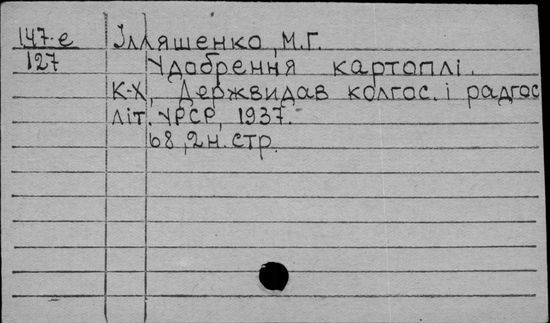 147-е Ілляшенко, М.Г.
127 Удобрення картоплі.
К-Х, Держвидав колгос. і радгос
літ. УРСР, 1937.
68, 2 н. стр.